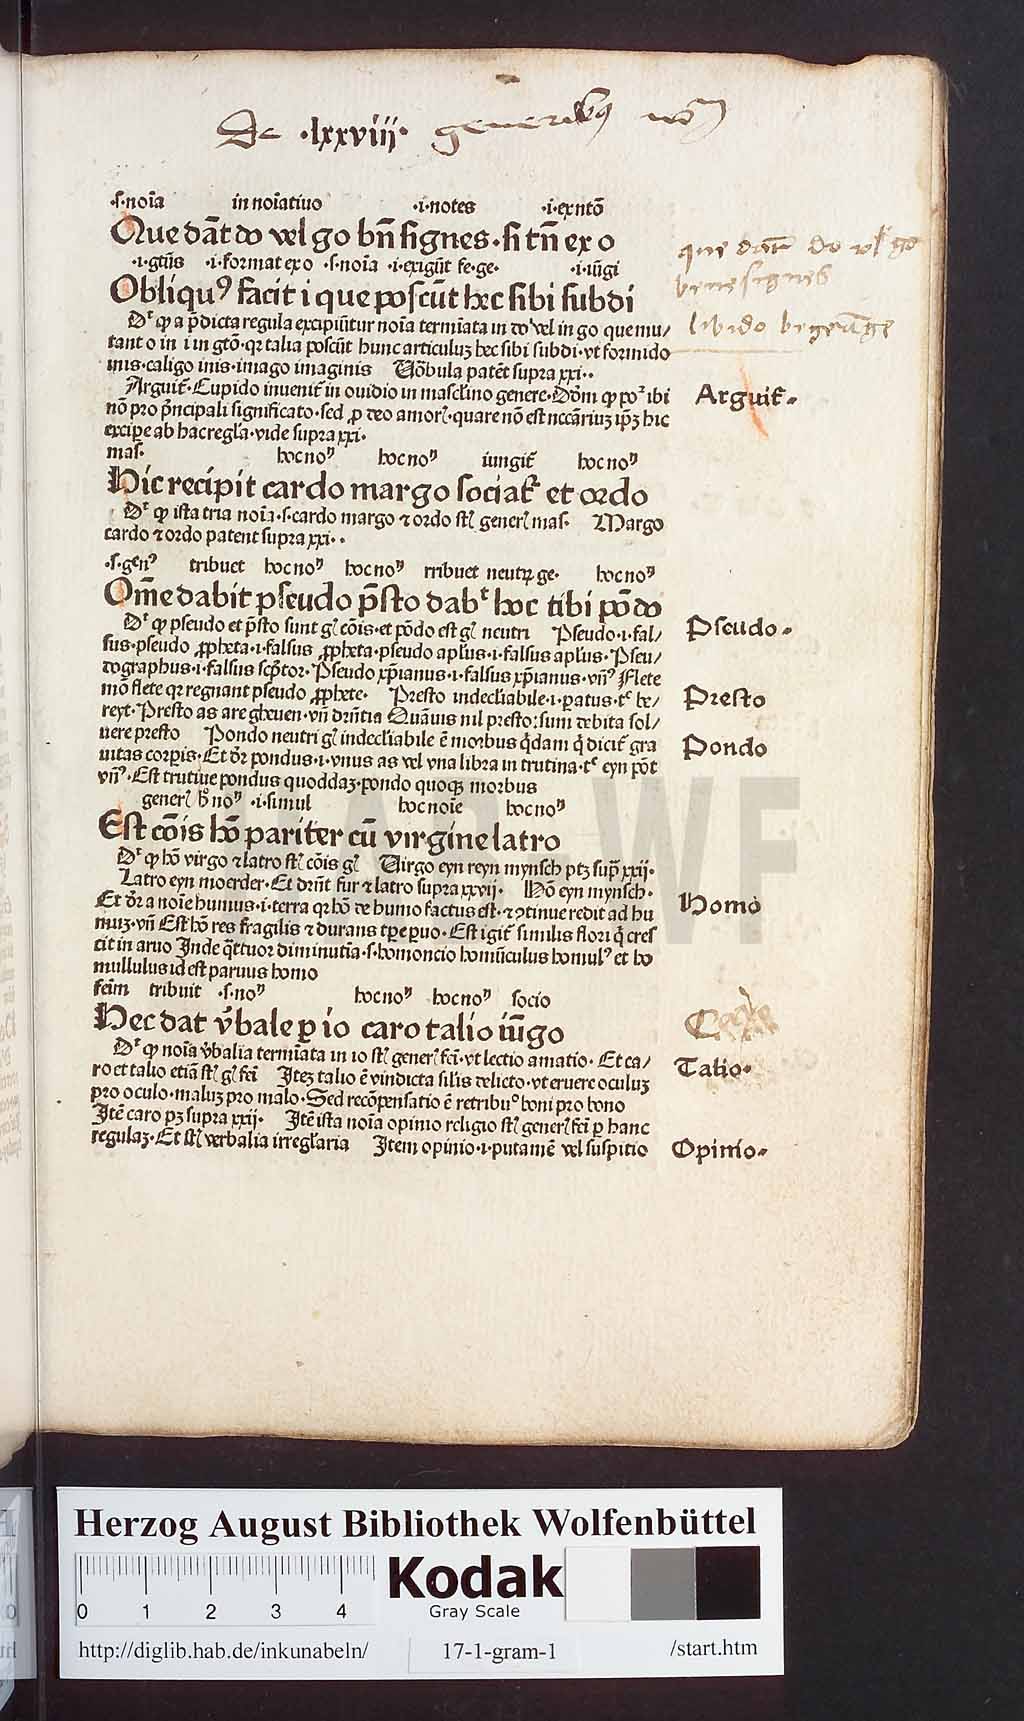 De ·lxxviij· generibus
·s·noīa in noīatiuo ·i·notes ·i·exntō
Que dāt do vel go bn̄ signes·si tn̄ ex o
·i·gtūs ·i·format ex o ·s·noīa ·i·exigūt fe·ge· ·i·iūgi
Obliquꝰ facit i que poscūt hec sibi subdi
Dr̄ ꝙ a p̄dicta regula excipiūtur noīa termīata in do vel in go que mu/
tant o in i in gtō·qr talia poscūt hunc articuluꝫ hec sibi subdi·vt formido
inis·caligo inis·imago imaginis Uōbula patēt supra xxi··
Arguit᷑·Cupido inuenit᷑ in ouidio in mascl̄ino genere·Dōm ꝙ poꝰ ibi
nō pro p̄ncipali significato·sed ꝓ deo amorꝭ·quare nō est nccāriuꝫ ip̄ꝫ hic
excipe ab hac regl̄a·vide supra xxi·
mas· hoc noꝰ hoc noꝰ iungit᷑ hoc noꝰ
Hic recipit cardo margo sociat᷑ et ordo
Dr̄ ꝙ ista tria noīa·s·cardo margo ⁊ ordo st̄ generꝭ mas· Margo
cardo ⁊ ordo patent supra xxi··
·s·genꝰ tribuet hoc noꝰ hoc noꝰ tribuet neutꝝ ge· hoc noꝰ
Om̄e dabit pseudo p̄sto dabᵗ hoc tibi pōdo
Dr̄ ꝙ pseudo et p̄sto sunt gꝭ cōis·et pōdo est gꝭ neutri Pseudo·i·fal/
sus·pseudo ꝓpheta·i·falsus ꝓpheta·pseudo apl̄us·i·falsus apl̄us·Pseu/
dographus·i·falsus scp̄tor·Pseudo xp̄ianus·i·falsus xp̄ianus·vn̄ꝰ Flete
mō flete qr regnant pseudo ꝓphete· Presto indecl̄iabile·i·paratus·tᶜ be/
reyt·Presto as are gheuen·vn̄ dr̄ntia Quāuis nil presto:sum debita sol/
uere presto Pondo neutri gꝭ indecl̄iabile ē morbus q̄dam q̄ dicit᷑ gra
uitas corpis·Et dr̄ pondus·i·vnus as vel vna libra in trutina·tᶜ eyn pōt
vn̄ꝰ·Est trutine pondus quoddaꝫ·pondo quoqꝫ morbus
generꝭ hᵒ noꝰ ·i·simul hoc noīe hoc noꝰ
Est cōis hō pariter cū virgine latro
Dr̄ ꝙ hō virgo ⁊ latro st̄ cōis gꝭ Uirgo eyn reyn mynsch ptꝫ sup̄ xxij·
Latro eyn moerder·Et dr̄nt fur ⁊ latro supra xxvij· Hō eyn mynsch·
Et dr̄ a noīe humus·i·terra qr hō de humo factus est·⁊ ꝯtinue redit ad hu
muꝫ·vn̄ Est hō res fragilis ⁊ durans tpe paruo·Est igit᷑ similis flori q̄ cres
cit in aruo Inde q̄ttuor diminutīa·s·homoncio homūculus homulꝰ et ho
mullulus id est paruus homo
feīm tribuit ·s·noꝰ hoc noꝰ hoc noꝰ socio
Hec dat v̄bale per io caro talio iūgo
Dr̄ ꝙ noīa v̄balia termīata in io st̄ generꝭ feī·vt lectio amatio· Et ca/
ro et talio etiā st̄ gꝭ feī Iteꝫ talio ē vindicta silis delicto·vt eruere oculuꝫ
pro oculo·maluꝫ pro malo·Sed recōpensatio ē retribuᵒ boni pro bono
Itē caro pꝫ supra xxij· Itē ista noīa opinio religio st̄ generꝭ feī ꝑ hanc
regulaꝫ·Et st̄ verbalia irregl̄aria Item opinio·i·putamē vel suspitio
que dāt do vl̄ go
bene signes
libido
Arguit᷑·
Pseudo·
Presto
Pondo
Homo
Talio·
Opinio·
HAB-WF
Herzog August Bibliothek Wolfenbüttel
0 1 2 3 4
Kodak
Gray Scale
http://diglib.hab.de/inkunabeln/ 17-1-gram-1 /start.htm